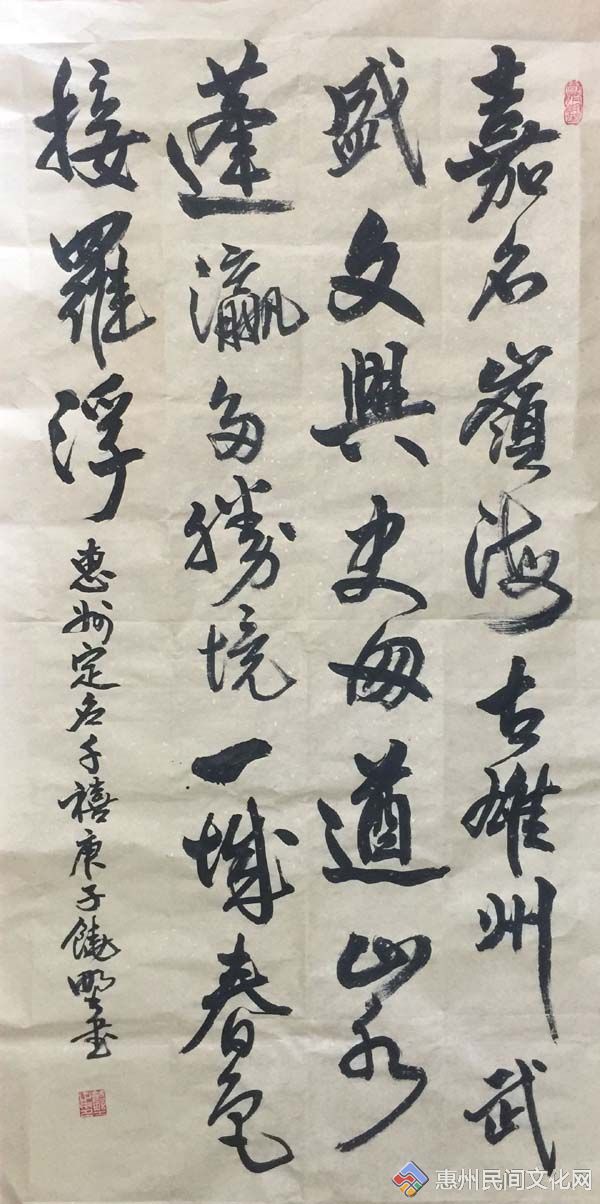 嘉名嶺海古雄州武
盛文興史冊遒山水
蓬瀛多勝境一城春色
接羅浮
惠州定名千禧庚子饒野書
惠州民间文化网